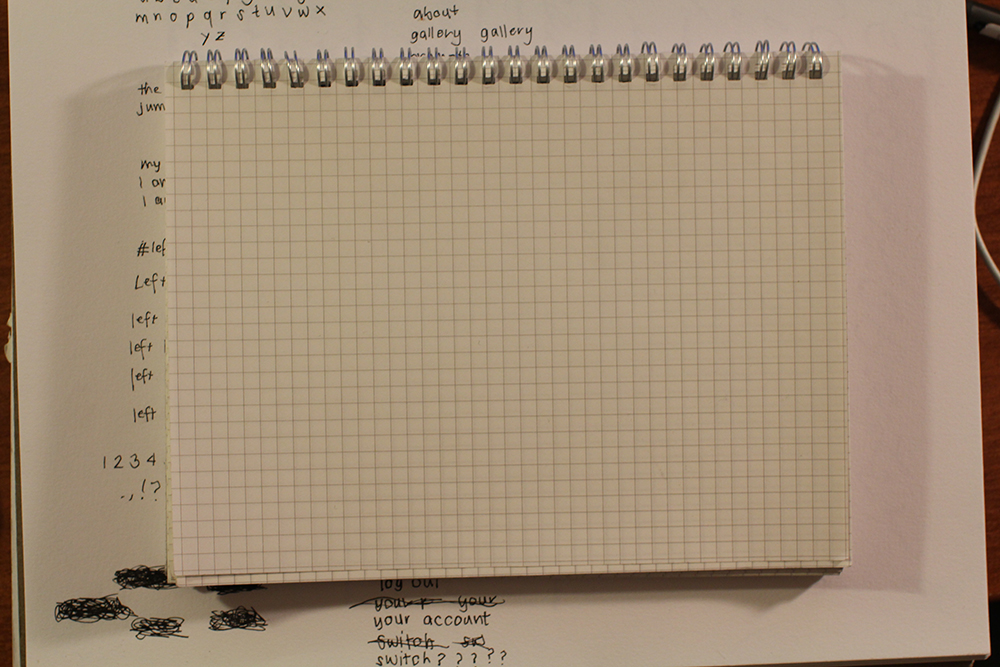 m n o p q r s t u v w x
y z
about
gallery gallery
the
jum
my
I
I
#lef
Left
left
left
left
left
1 2 3 4
. , ! ?
log out
your your
your account
switch sw
switch ? ? ? ?